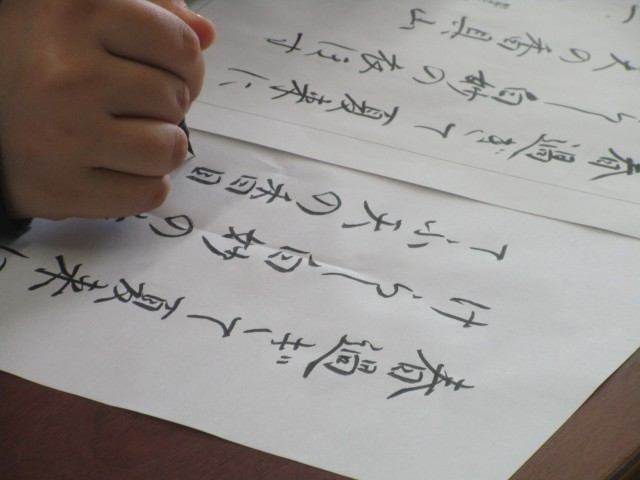 春過ぎて夏来に
けらし白妙の
てふ天の香
春過ぎて夏来に
らし白妙の衣ほす
天の香具山